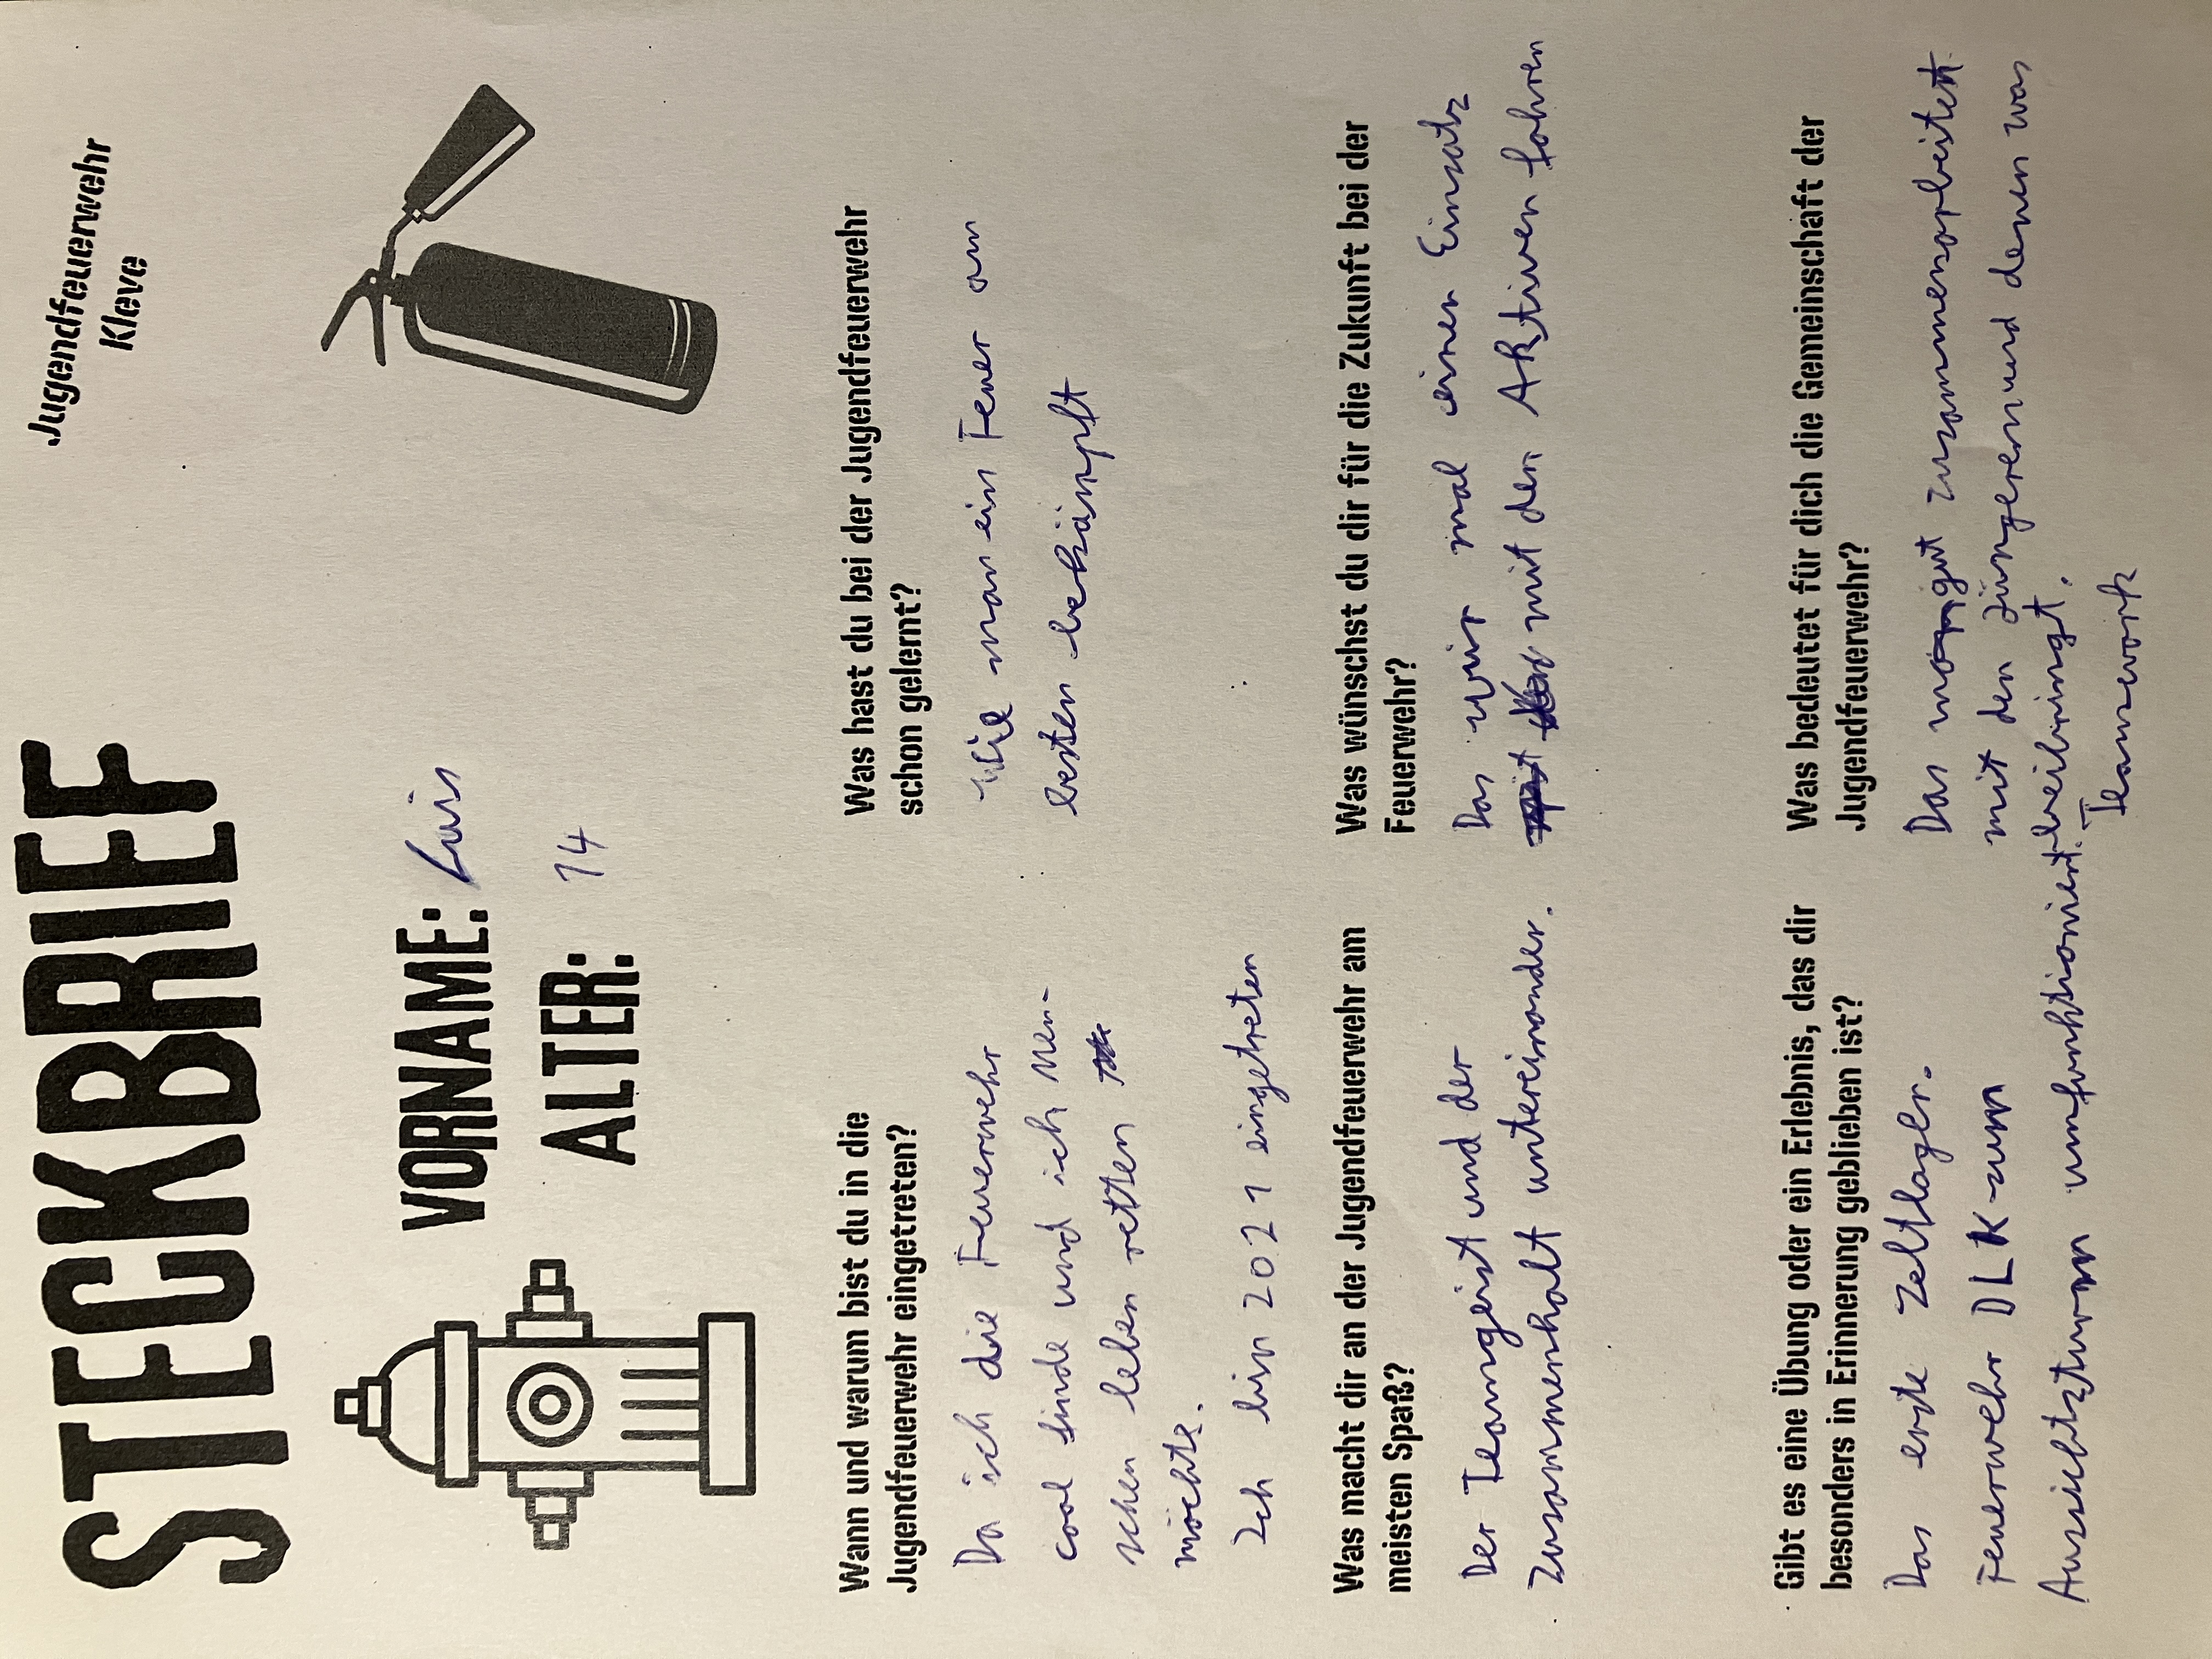 Jugendfeuerwehr
Kleve
STECKBRIEF
VORNAME: Luis
ALTER: 14
Wann und warum bist du in die
Jugendfeuerwehr eingetreten?
Da ich die Feuerwehr
cool finde und ich Men-
schen leben retten
möchte.
Ich bin 2021 eingetreten
Was hast du bei der Jugendfeuerwehr
schon gelernt?
Wie man ein Feuer am
besten bekämpft
Was macht dir an der Jugendfeuerwehr am
meisten Spaß?
Der Teamgeist und der
Zusammenhalt untereinander.
Was wünschst du dir für die Zukunft bei der
Feuerwehr?
Das wir mal einen Einsatz
mit den Aktiven fahren
Gibt es eine Übung oder ein Erlebnis, das dir
besonders in Erinnerung geblieben ist?
Das erste Zeltlager.
Feuerwehr DLK zum
Aussichtsturm umfunktioniert.
Was bedeutet für dich die Gemeinschaft der
Jugendfeuerwehr?
Das man gut zusammenarbeitet
mit den jüngeren und denen was
beibringt.
Teamwork